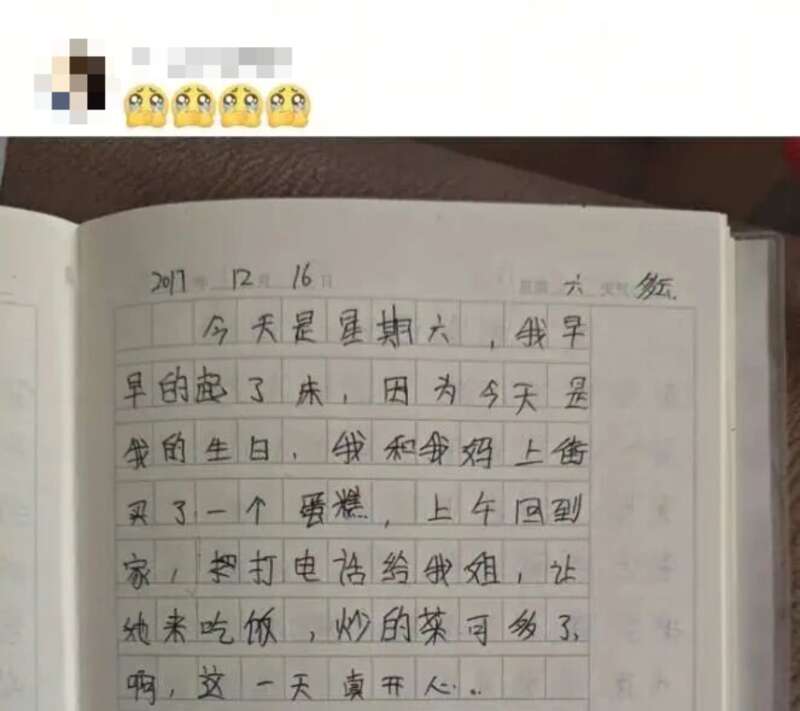 2017年 12月 16日 星期 六 天气 多云
今天是星期六，我早
早的起了床，因为今天是
我的生日，我和我妈上街
买了一个蛋糕，上午回到
家，把打电话给我姐，让
她来吃饭，炒的菜可多了
啊，这一天真开心..